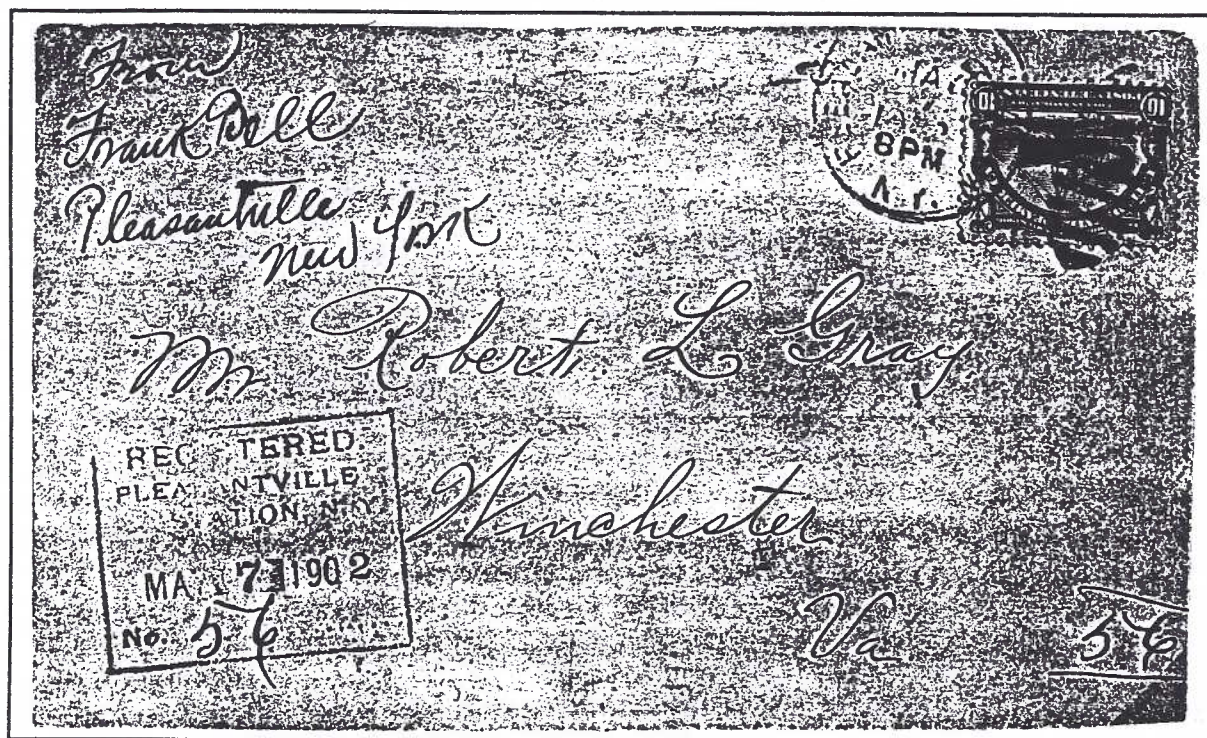 From
Frank Bell
Pleasantville
New York
8PM
N.Y.
10 10
Mr Robert. L. Gray
REG TERED
PLEA NTVILLE
ATION, N.Y.
MA 7 1902
No. 56
Winchester
Va
56